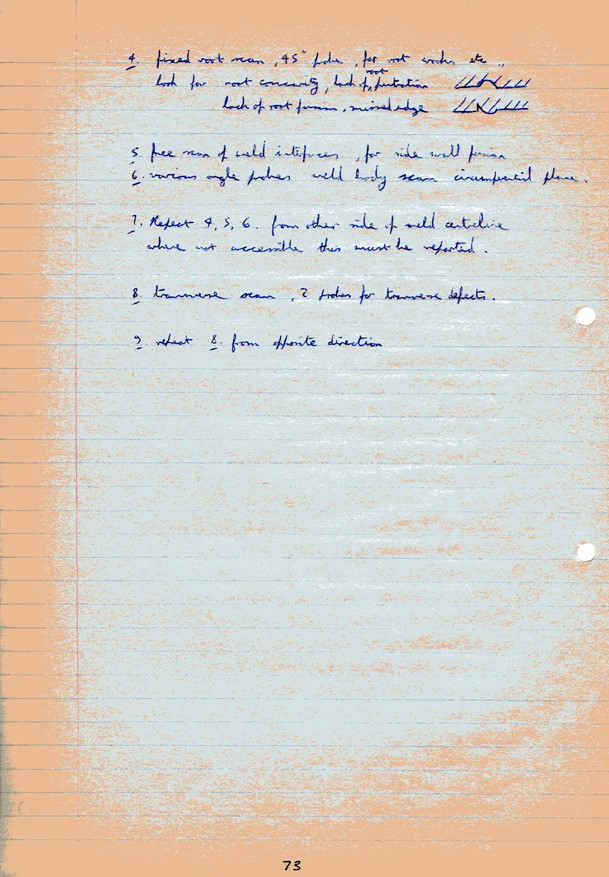 4. fixed root scan, 45° probe, for root cracks etc..
look for root concavity, lack of root penetration
lack of root fusion, missed edge
5. free scan of weld interfaces, for side wall fusion
6. various angle probes weld body scan circumferential plane.
7. Repeat 4, 5, 6. from other side of weld centreline
where not accessible this must be reported.
8. transverse scan, 2 probes for transverse defects.
9. repeat 8. from opposite direction
73